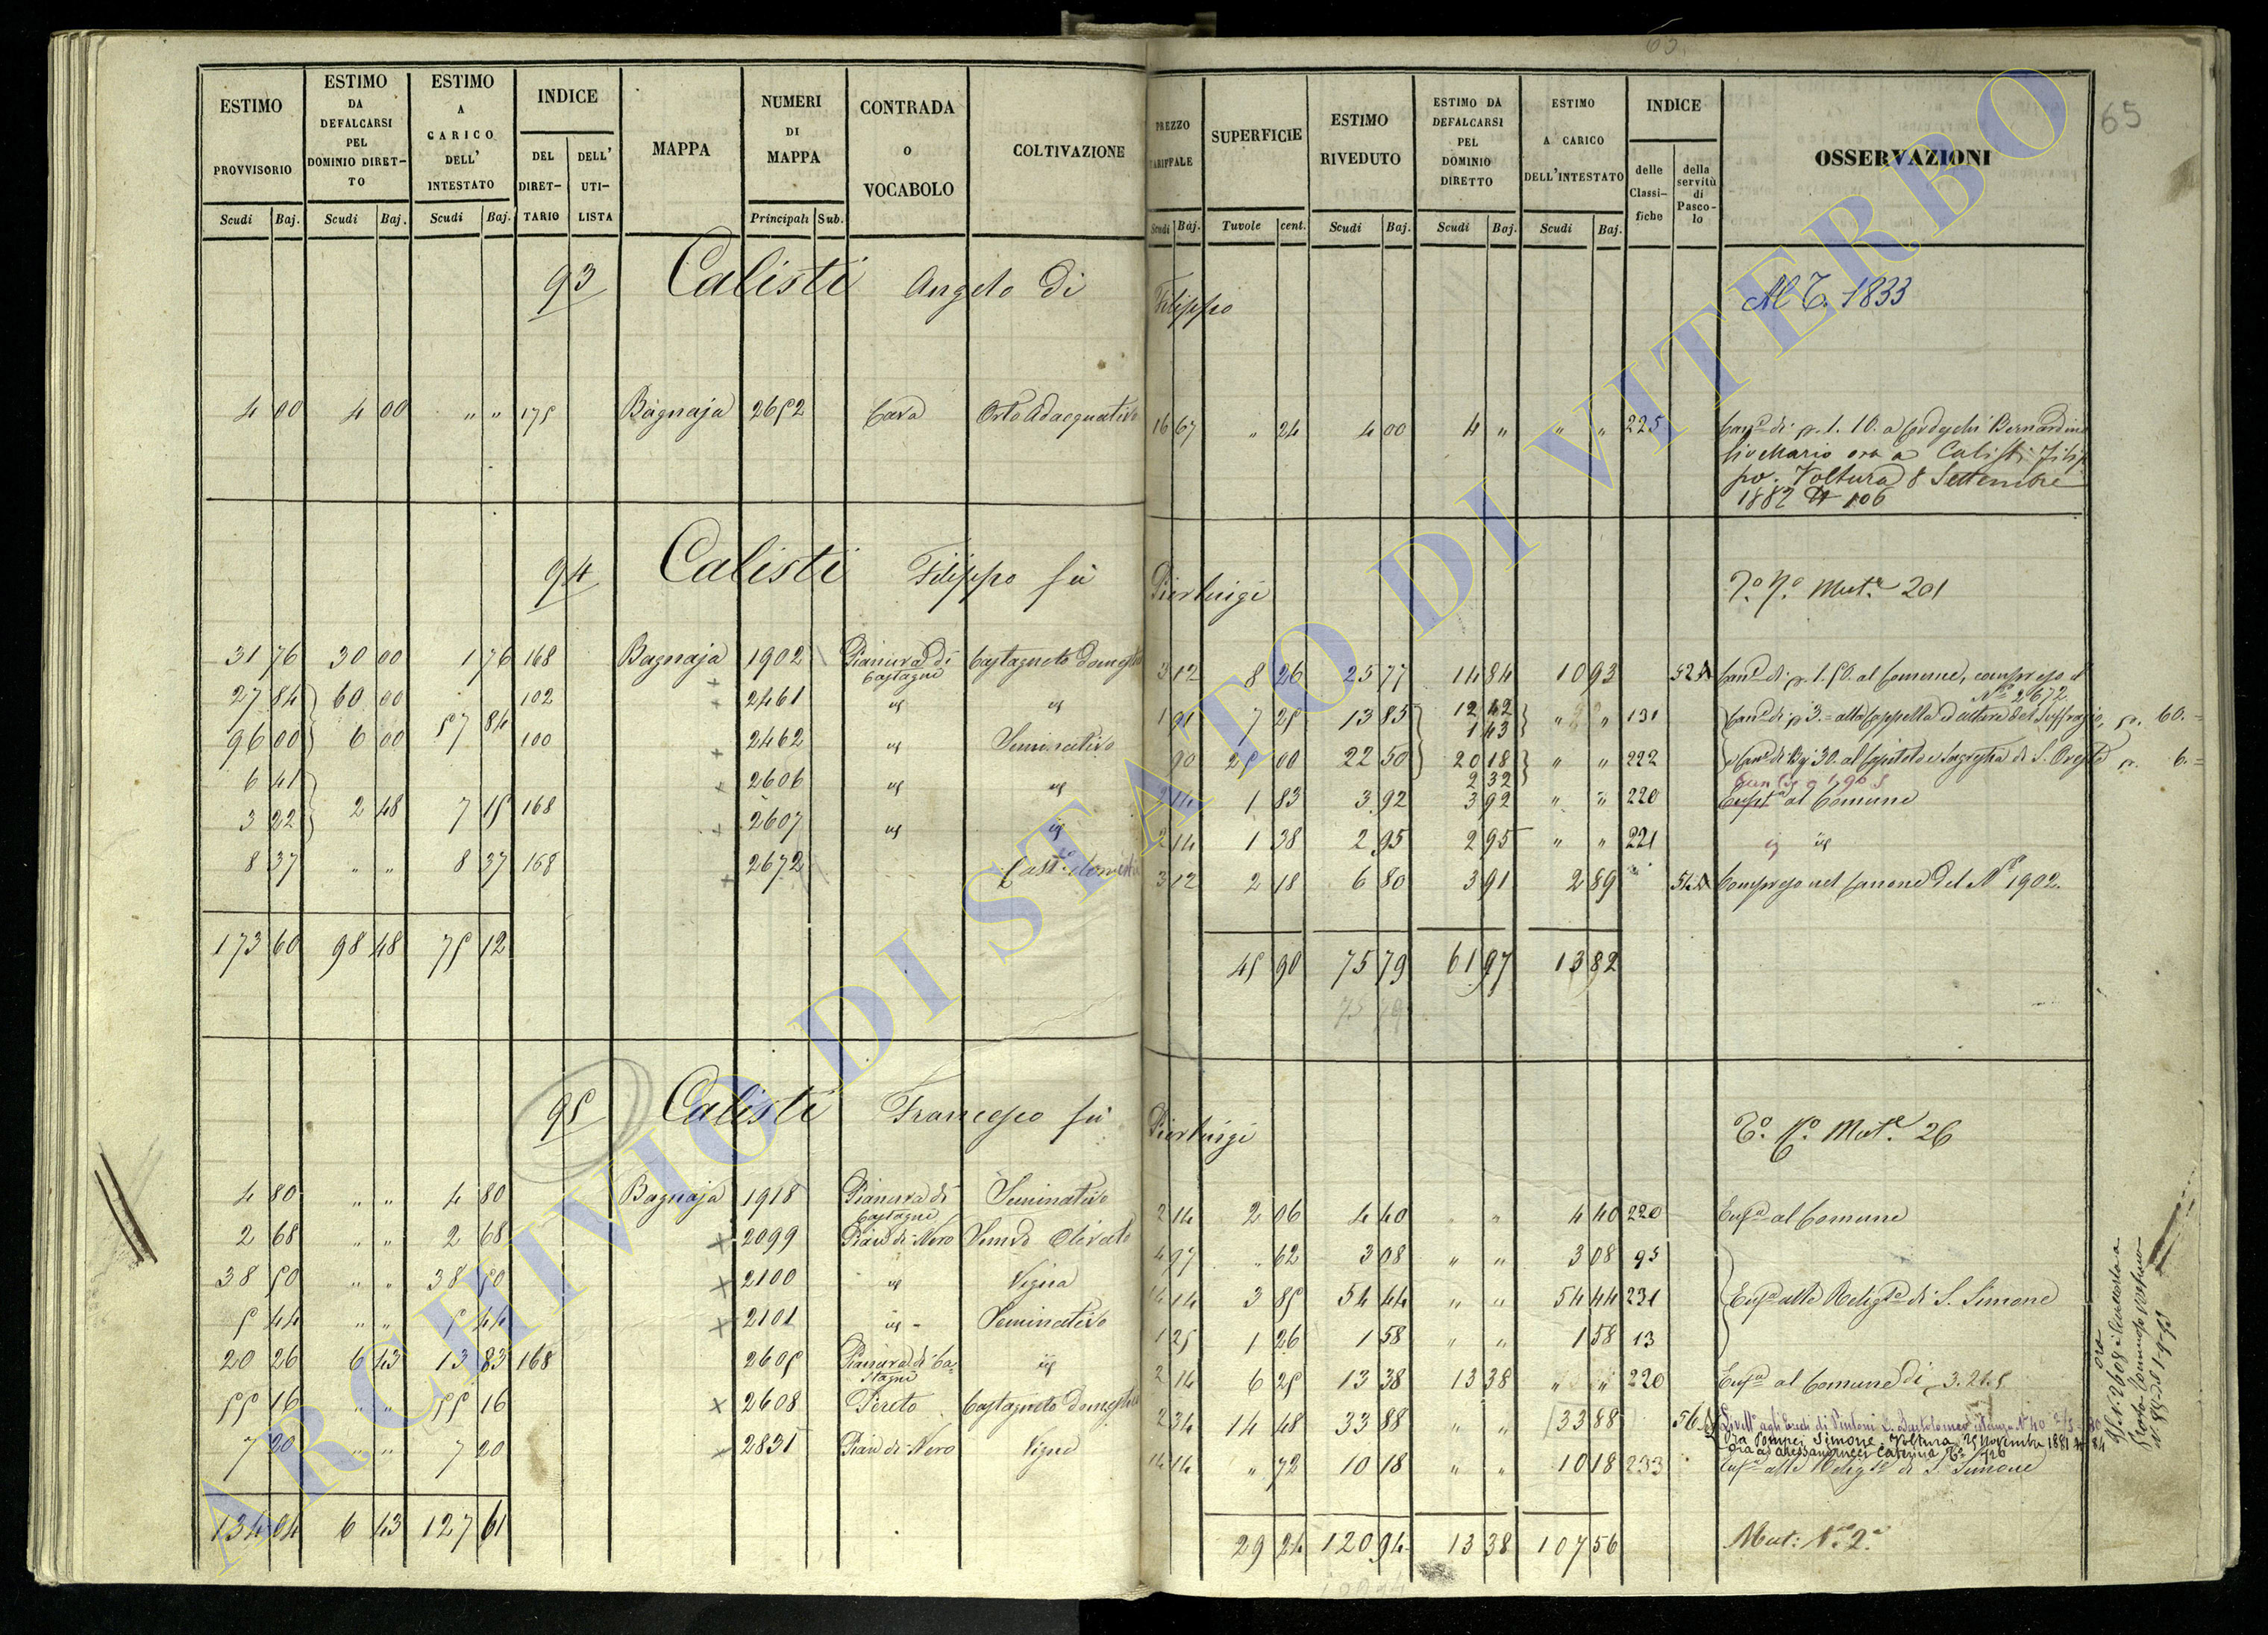 65.
65
ESTIMO PROVVISORIO | ESTIMO DA DEFALCARSI PEL DOMINIO DIRETTO | ESTIMO A CARICO DELL' INTESTATO | INDICE DEL DIRETTARIO | DELL' UTILISTA | MAPPA | NUMERI DI MAPPA | CONTRADA O VOCABOLO | COLTIVAZIONE | PREZZO TARIFFALE | SUPERFICIE | ESTIMO RIVEDUTO | ESTIMO DA DEFALCARSI PEL DOMINIO DIRETTO | ESTIMO A CARICO DELL'INTESTATO | INDICE delle Classifiche | della servitù di Pascolo | OSSERVAZIONI
Scudi | Baj. | Scudi | Baj. | Scudi | Baj. | Principali | Sub. | Scudi | Baj. | Tavole | cent. | Scudi | Baj. | Scudi | Baj. | Scudi | Baj.
93 Calisti Angelo di Filippo Al T. 1833
4 00 | 4 00 | " " | 175 | Bagnaja | 2652 | Cava | Orto Adacquativo | 16 67 | " 24 | 4 00 | 4 " | " " | 225 | Can.e di p. 1. 10. a Bernardino
fù Mario ora a Calisti Filip
po. Voltura 8 Settembre
1882 N 106
94 Calisti Filippo fù Pierluigi T.o N.o Mut.e 201
31 76 | 30 00 | 1 76 | 168 | Bagnaja | 1902 | Pianura di Castagni | Castagneto domestico | 3 12 | 8 26 | 25 77 | 14 84 | 10 93 | 52 | Can.e di p. 1.50. al Comune, compreso il N.o 2672.
27 84 | 60 00 | 57 84 | 102 | 2461 | id | id | 1 91 | 7 25 | 13 85 | 12 42 | 1 43 | " " | 131 | Can.e di p 3. alla Cappella del Suffragio, 60.
96 00 | 6 00 | 100 | 2462 | id | Seminativo | 90 | 25 00 | 22 50 | 20 18 | 2 32 | " " | 222 | e Can.e di Bj 30. al Capitolo e Sagrestia di S. 6.
6 41 | 2 48 | 7 15 | 168 | 2606 | id | id | 2 14 | 1 83 | 3 92 | 3 92 | " " | 220 | al Comune
3 22 | 2607 | id | id | 2 14 | 1 38 | 2 95 | 2 95 | " " | 221 | id id
8 37 | " " | 8 37 | 168 | 2672 | Cast.o domestico | 3 12 | 2 18 | 6 80 | 3 91 | 2 89 | Compreso nel Canone del N.o 1902.
173 60 | 98 48 | 75 12 | 45 90 | 75 79 | 61 97 | 13 82
75 79
95 Calisti Francesco fù Pierluigi T.o N.o Mut.e 26
4 80 | " " | 4 80 | Bagnaja | 1918 | Pianura di Castagni | Seminativo | 2 14 | 2 06 | 4 40 | " | 4 40 | 220 | Enf.a al Comune
2 68 | " " | 2 68 | 2099 | Pian di Nero | Semvo Olivato | 4 97 | " 62 | 3 08 | " " | 3 08 | 95
38 50 | " " | 38 50 | 2100 | id | Vigna | 14 14 | 3 85 | 54 44 | " " | 54 44 | 231 | Enf.a alle Relig.se di S. Simone
5 44 | " " | 5 44 | 2101 | id | Seminativo | 1 25 | 1 26 | 1 58 | " " | 1 58 | 13
20 26 | 6 43 | 13 83 | 168 | 2605 | Pianura di Castagni | id | 2 14 | 6 25 | 13 38 | 13 38 | " " | 220 | Enf.a al Comune di 3. 21.5
55 16 | " " | 55 16 | 2608 | Pereto | Castagneto domestico | 2 34 | 14 48 | 33 88 | " " | 33 88 | 56 | agli Eredi di Bartolomeo
Ora Pompei Simone. Voltura 25 Novembre 1881 N 84
Ora ad Alessandrucci
7 20 | " " | 7 20 | 2831 | Pian di Nero | Vigna | 14 14 | " 72 | 10 18 | " " | 10 18 | 233 | Enf.a alle Relig.se di S. Simone
134 04 | 6 43 | 127 61 | 29 24 | 120 94 | 13 38 | 107 56 | Mut: N.o 2.
ARCHIVIO DI STATO DI VITERBO